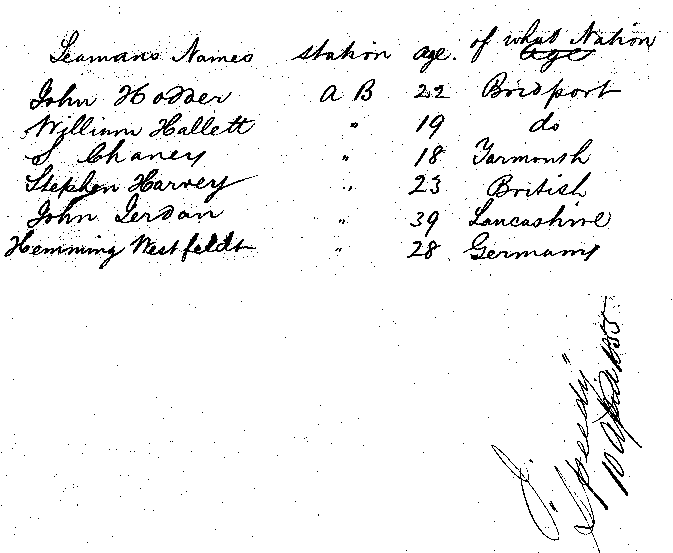 Seamans Names station age. of what Nation
John Hodder A B 22 Bridport
William Hallett " 19 do
S Chaney " 18 Yarmouth
Stephen Harvey " 23 British
John Jerdan " 39 Lancashire
Hemming Westfeldt " 28 Germany
"Speedy"
10 April 1855